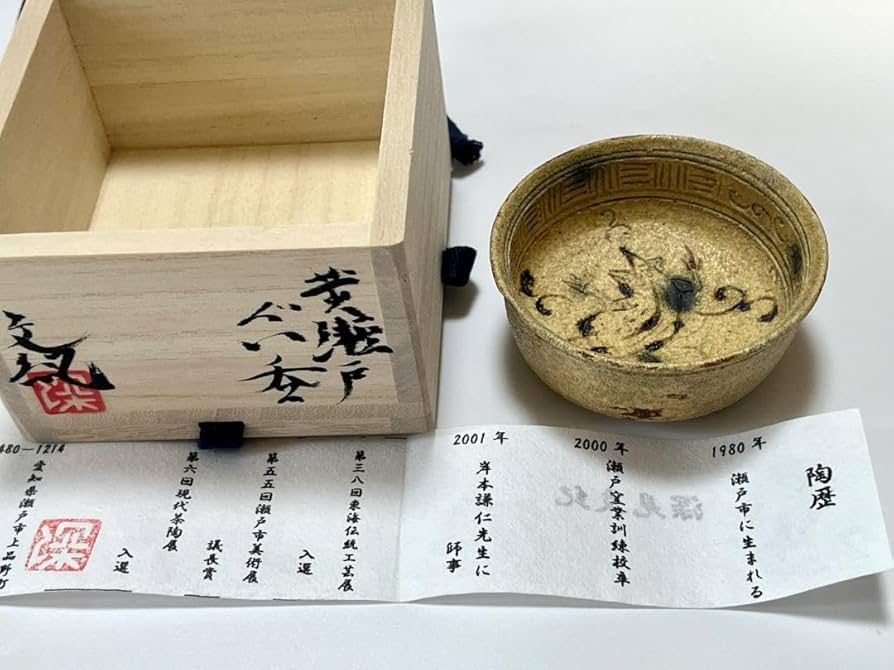 黄瀬戸
ぐい呑
文紀
深
陶歴
1980年
瀬戸市に生まれる
2000年
瀬戸窯業訓練校卒
2001年
岸本謙仁先生に
師事
第三八回東海伝統工芸展
入選
第五五回瀬戸市美術展
議長賞
第六回現代茶陶展
入選
480-1214
愛知県瀬戸市上品野町
深
深見文紀